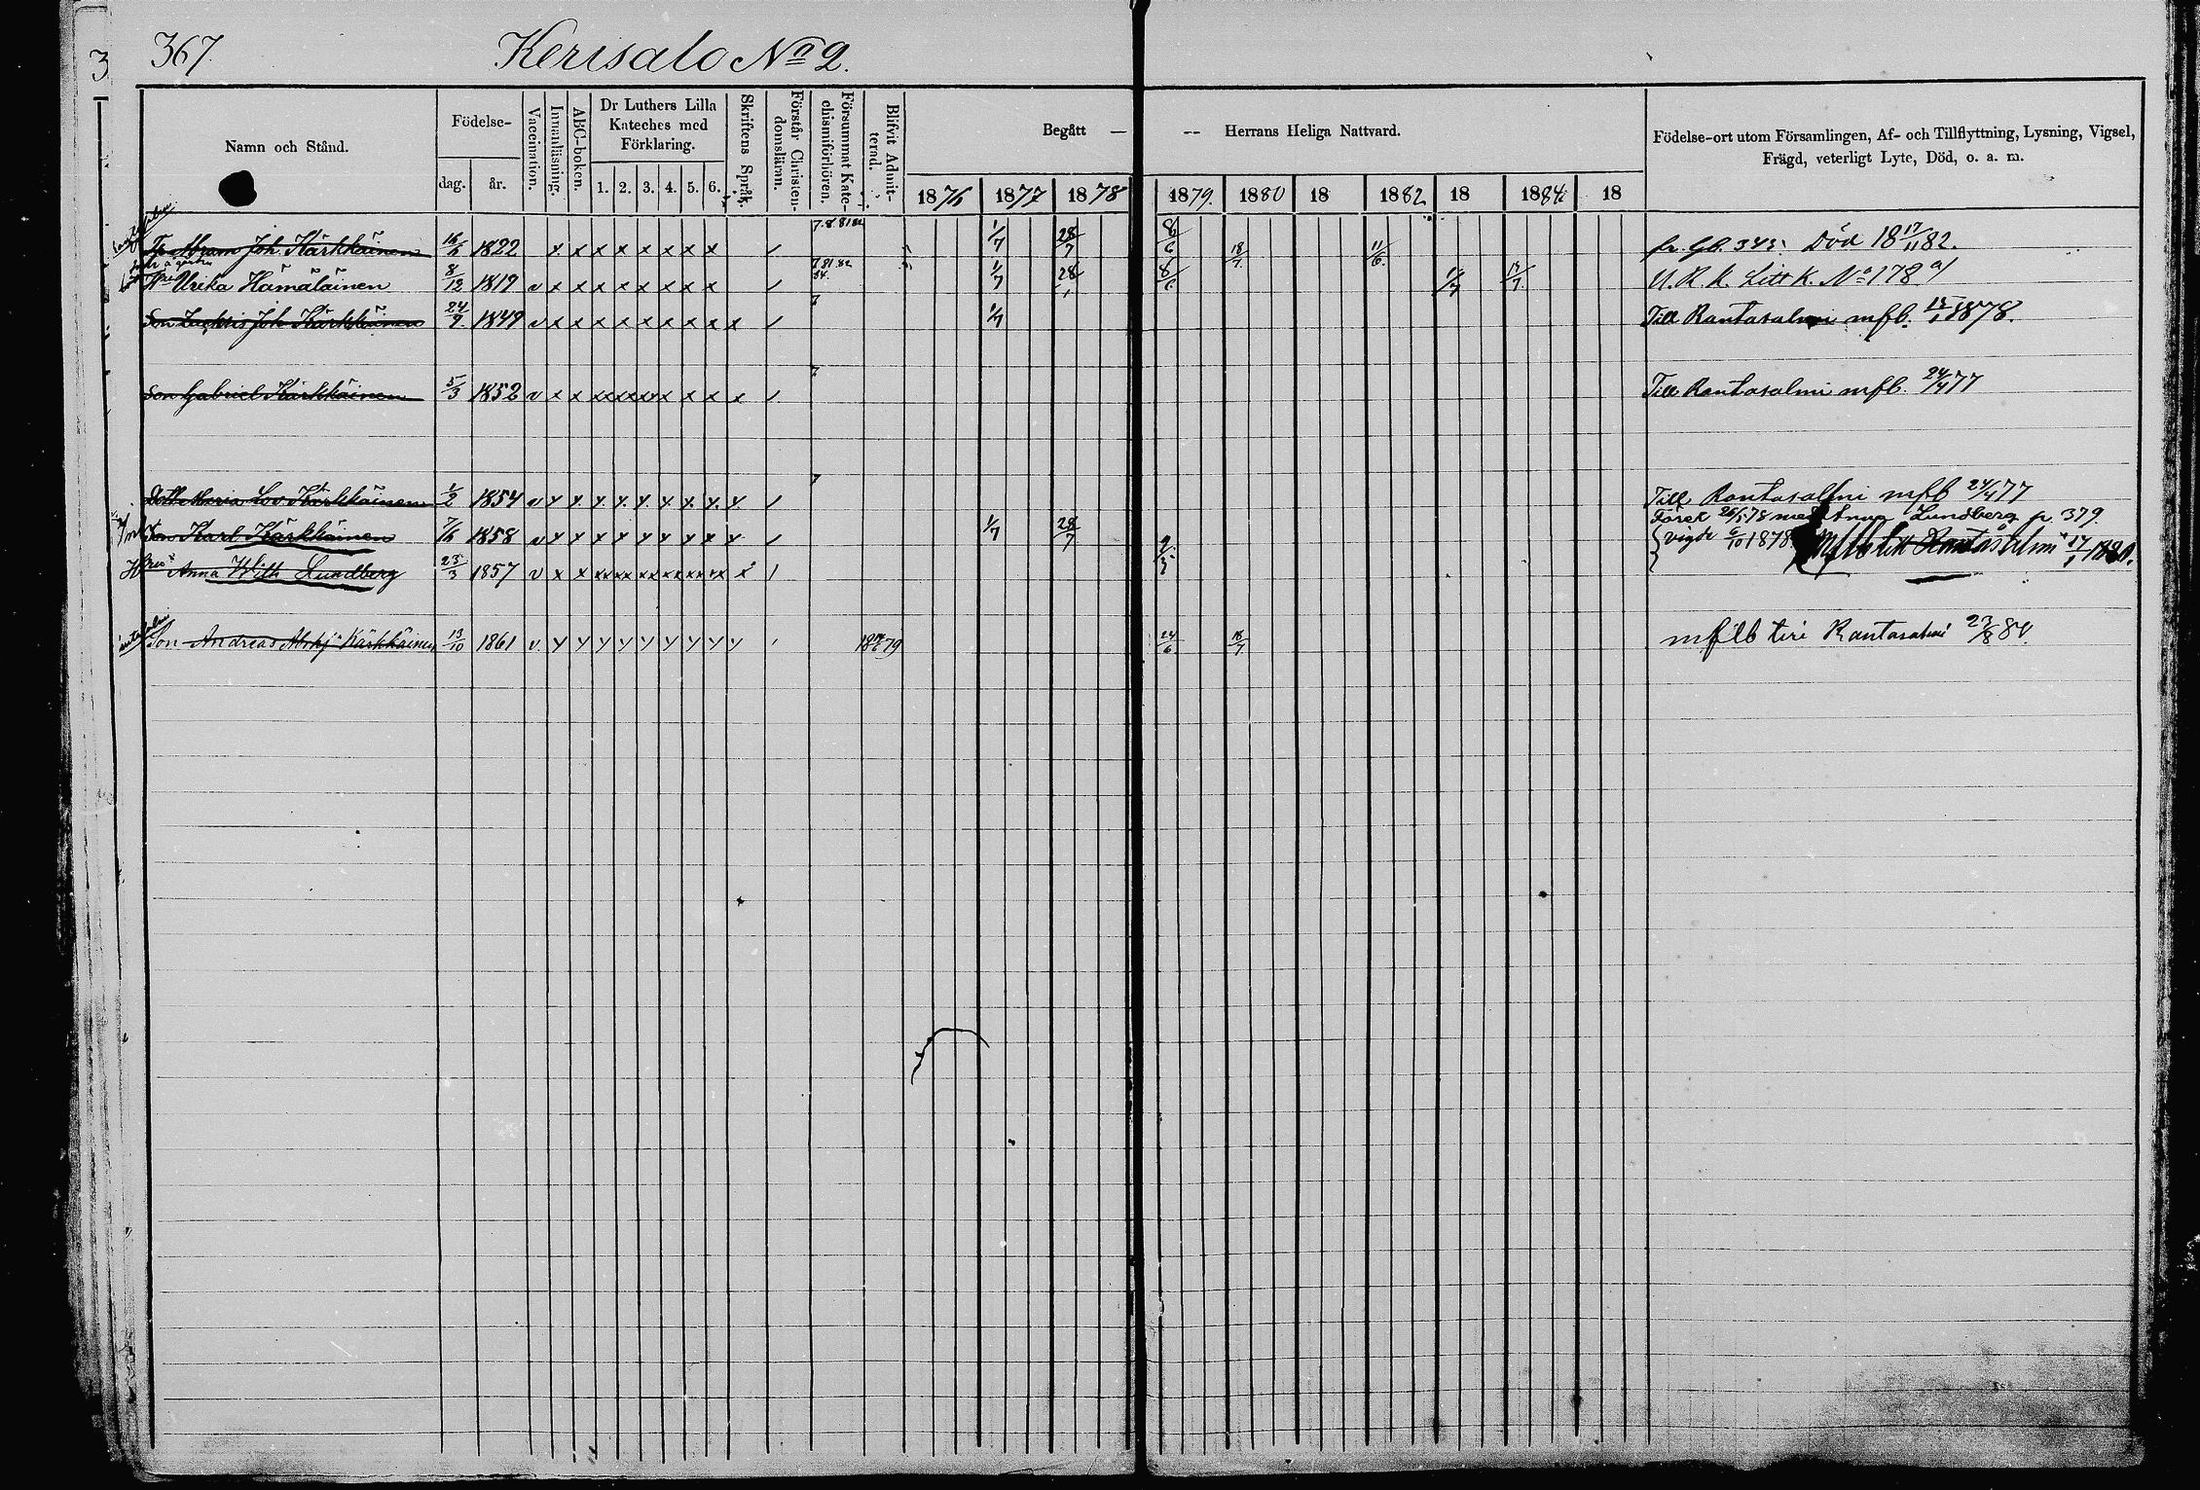 367. Kerisalo No 2.
Namn och Stånd. Födelse- dag. år. Vaccination. Innanläsning. ABC-boken. Dr Luthers Lilla Kateches med Förklaring. 1. 2. 3. 4. 5. 6. Skriftens Språk. Förstår Christendomsläran. Försummat Katechismiförhören. Blifvit Admitterad. Begått — -- Herrans Heliga Nattvard. Födelse-ort utom Församlingen, Af- och Tillflyttning, Lysning, Vigsel, Frägd, veterligt Lyte, Död, o. a. m.
1876 1877 1878 1879. 1880 18 1882 18 1884 18
Abram Joh. Kärkkäinen 1822 x x x x x x x x 1/7 28/7 8/6 18/7 11/6 fr. Gb. 343. Död 18 17/11 82.
Ulrika Hämäläinen 8/12 1819 v x x x x x x x x 7 81.82 84. 1/7 28 8/6 U. R. K. Litt K. No 178
Son Joh Kärkkäinen 24/9 1849 v x x x x x x x x x 7 1/7 Till Rantasalmi mfb. 1878.
Son Gabriel Kärkkäinen 5/3 1852 v x x xx xx xx x x x x 7 Till Rantasalmi mfb. 24/4 77
Maria Lov Kärkkäinen 1/2 1854 v x x x x x x x x x 7 Till Rantasalmi mfb 24/4 77
Son Karl Kärkkäinen 1858 v x x x x x x x x x 1/7 28/7 26/5 78 med Anna Lundberg p. 379.
vigde 1878 Rantasalmi 1880.
Anna Wilh Lundberg 23/3 1857 v x x xx xx xx xx xx xx x
Son Andreas Kärkkäinen 13/10 1861 v x x x x x x x x x 1879 24/6 18/7 Rantasalmi 23/8 84.